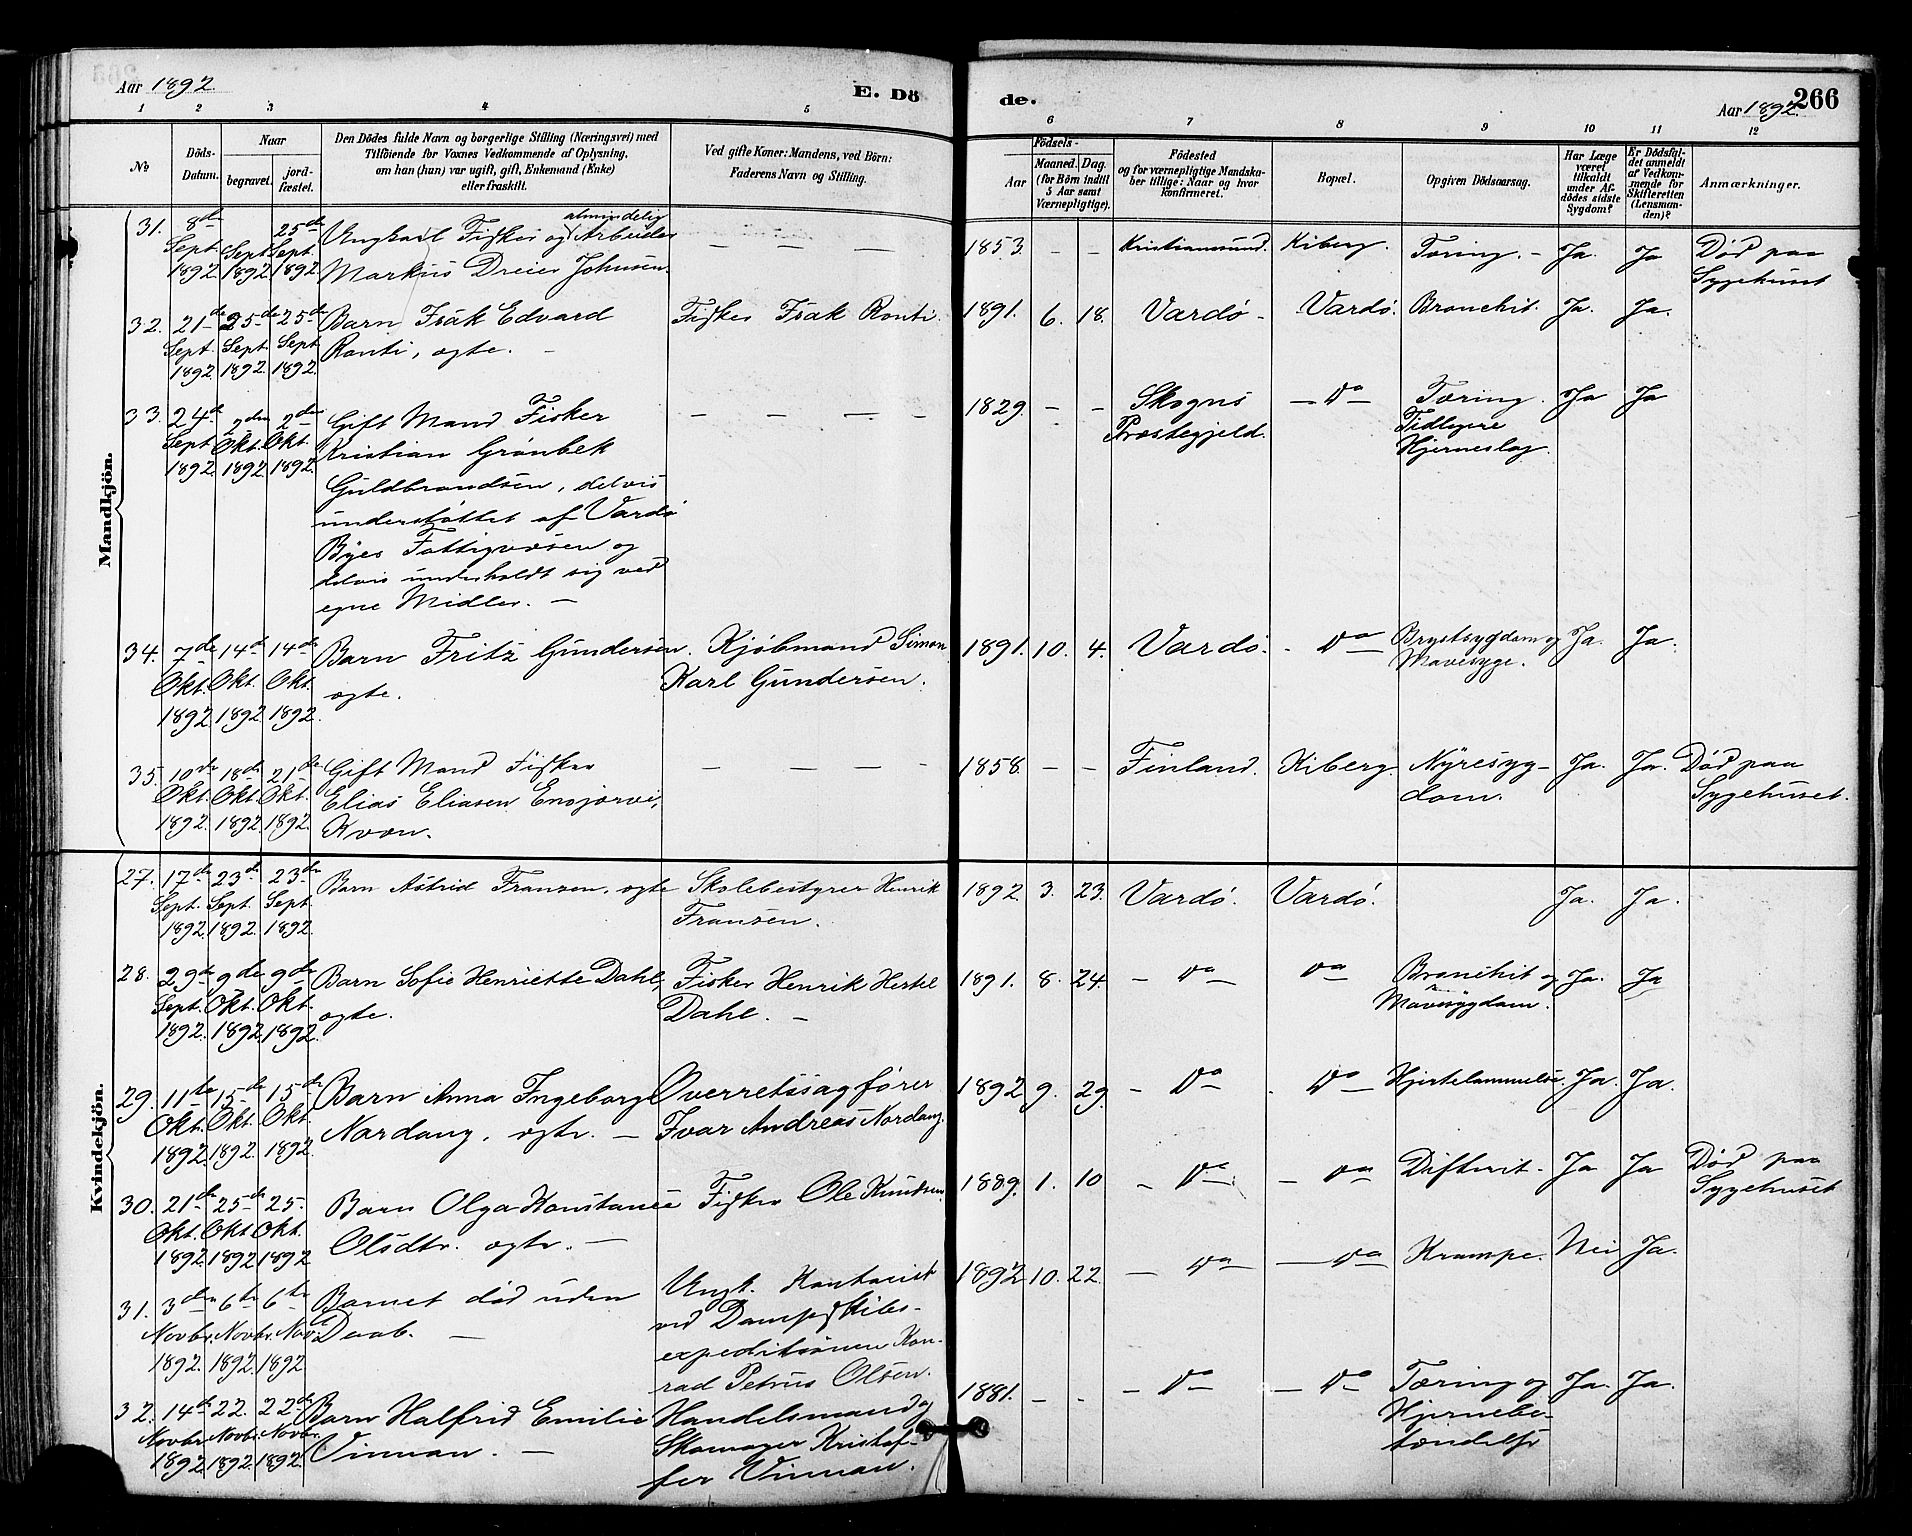 Aar 1892.
E. Dö
de.
Aar 1892.
266
1 2 3 4 5 6 7 8 9 10 11 12
No
Döds-
Datum.
Naar
begravet.
jord-
fæstet.
Den Dödes fulde Navn og borgerlige Stilling (Næringsvei) med
Tilföiende for Voxnes Vedkommende af Oplysning,
om han (hun) var ugift, gift, Enkemand (Enke)
eller fraskilt.
Ved gifte Koner: Mandens, ved Börn:
Faderens Navn og Stilling.
Födsels-
Aar
Maaned.
Dag.
(for Börn indtil
5 Aar samt
Værnepligtige).
Födested
og for værnepligtige Mandska-
ber tillige: Naar og hvor
konfirmeret.
Bopæl.
Opgiven Dödsaarsag.
Har Læge
været
tilkaldt
under Af-
dödes sidste
Sygdom?
Er Dödsfal-
det anmeldt
af Vedkom-
mende for
Skifteretten
(Lensman-
den)?
Anmærkninger.
Mandkjön.
31. 8de Sept. 1892 Sept. 1892 25de Sept. 1892
Ungkarl Fisker og almindelig Arbeider
Markus Dreier Johnsen.
— — —
1853. - - Kristianssund. Kiberg. Tæring. - Ja. Ja Död paa
Sygehuset
32. 21de Sept. 1892. 25de Sept. 1892. 25de Sept. 1892.
Barn Isak Edvard
Ronti, ægte. -
Fisker Isak Ronti.
1891. 6. 18. Vardö - Vardö. Bronchit. Ja. Ja.
33. 24de Sept. 1892. 2den Okt. 1892 2den Okt. 1892.
Gift Mand Fisker
Kristian Grönbek
Guldbrandsen, delvis
understöttet af Vardö
Byes Fattigvæsen og
delvis underholdt sig ved
egne Midler. -
— — — -
1829. - - Skogns
Præstegjeld.
- Do - Tæring.
Tidligere
Hjerneslag.
Ja Ja
34. 7de Okt. 1892 14de Okt. 1892 14de Okt. 1892.
Barn Fritz Gundersen.
ægte.
Kjöbmand Simon
Karl Gundersen.
1891. 10. 4. Vardö. - Do Brystsygdom og
Mavesyge.
Ja. Ja.
35. 10de Okt. 1892. 18de Okt. 1892. 21de Okt. 1892.
Gift Mand Fisker
Elias Eliasen Ensjærvi,
Kvæn.
— — — -
1858. - - Finland. Kiberg. Nyresyg-
dom.
Ja. Ja. Död paa
Sygehuset.
Kvindekjön.
27. 17de Sept. 1892. 23de Sept. 1892. 23de Sept. 1892.
Barn Astrid Franzen, ægte
Skolebestyrer Henrik
Franzen.
1892 3. 23. Vardö. Vardö. Ja. Ja.
28. 29de Sept. 1892. 9de Okt. 1892 9de Okt. 1892
Barn Sofie Henriette Dahl,
ægte.
Fisker Henrik Hertel
Dahl. -
1891. 8. 24. - Do - Do Bronchit og
Mavesygdom.
Ja. Ja
29. 11te Okt. 1892. 15de Okt. 1892. 15de Okt. 1892.
Barn Anna Ingeborg
Nordang, ægte. -
Overretssagförer
Ivar Andreas Nordang.
1892 9. 29. - Do - - Do - Hjertelammelse. Ja. Ja.
30. 21de Okt. 1892 25de Okt. 1892 25. Okt. 1892
Barn Olga Konstance
Olsdtr. ægte. -
Fisker Ole Knudsen
1889. 1. 10 - Do - - Do Difterit - Ja Ja Död paa
Sygehuset
31. 3die Novbr. 1892. 6te Novbr. 1892. 6te Nov. 1892
Barnet död uden
Daab. -
Ungk. Kontorist
ved Dampskibs-
expeditionen Kon-
rad Petrus Olsen.
1892 10. 22. - Do - - Do - Krampe. Nei Ja.
32. 14de Novbr. 1892 22. Novbr. 1892. 22de Novbr. 1892.
Barn Halfrid Emilie
Vinnan. -
Handelsmand og
Skomager Kristof-
fer Vinnan.
1881. - - - Do - - Do - Tæring og
Hjernebe-
tændelse
Ja. Ja.